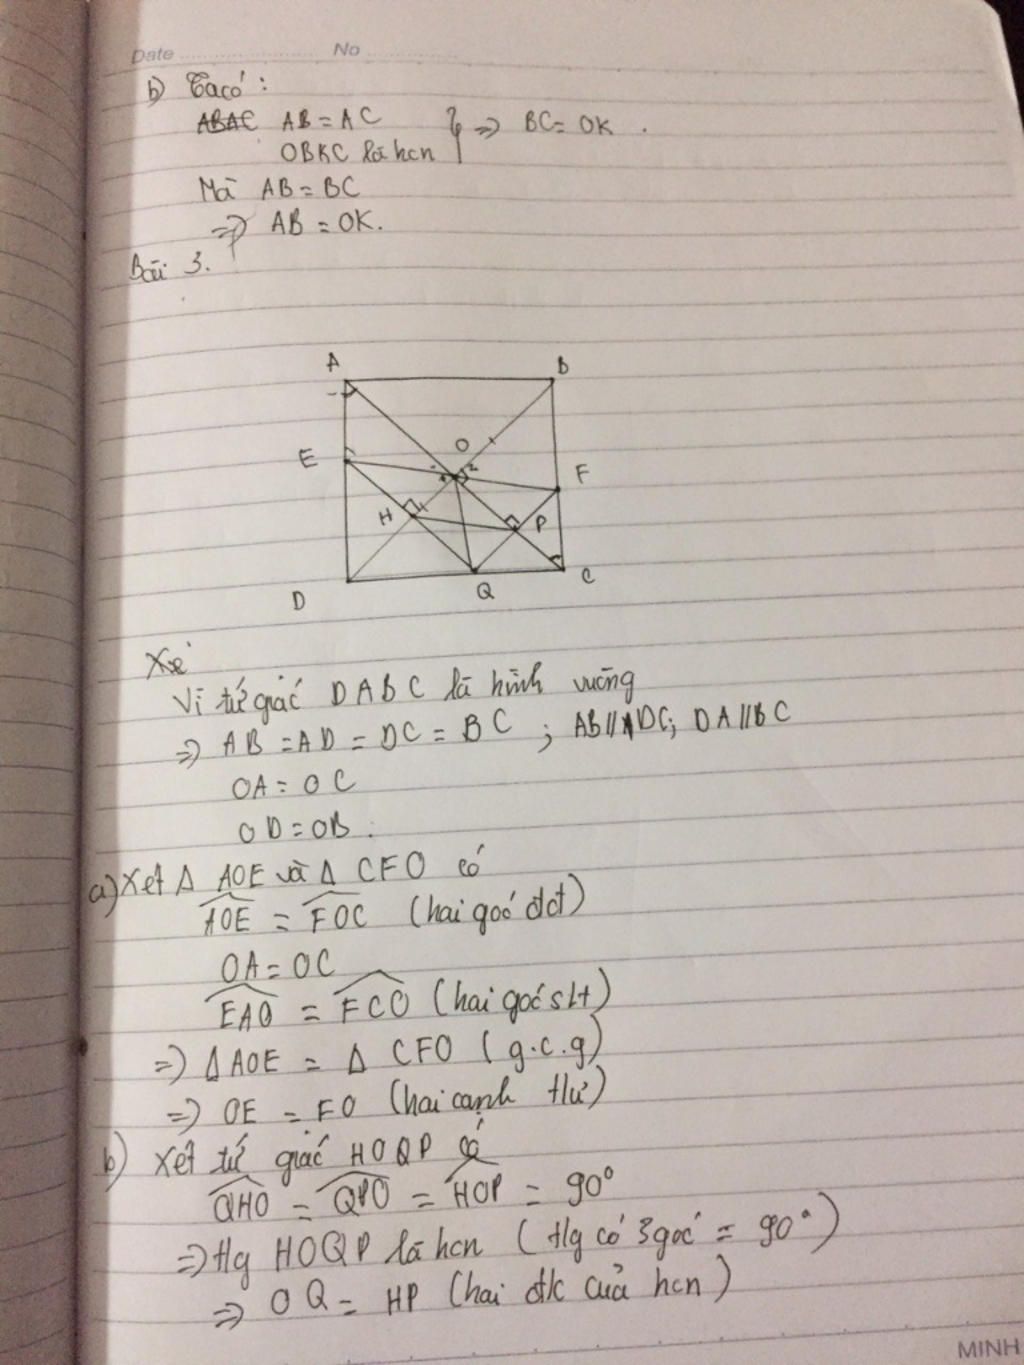 Date No
b) Ta có :
ABAC AB = AC } => BC = OK .
OBKC là hcn
Mà AB = BC
=> AB = OK.
Bài 3.
A B
O
E F
H P
D Q C
Xé
Vì tứ giác DABC là hình vuông
=> AB = AD = DC = BC ; AB//DC; DA//BC
OA = OC
OD = OB .
a) Xét Δ AOE và Δ CFO có
AOE = FOC (hai goć đđ)
OA = OC
EAO = FCO (hai goć slt)
=> Δ AOE = Δ CFO (g.c.g)
=> OE = FO (hai cạnh tứ)
b) Xét tứ giác HOQP có
QHO = QPO = HOP = 90°
=> tg HOQP là hcn (tg có 3 goć = 90°)
=> OQ = HP (hai đtc của hcn)
MINH